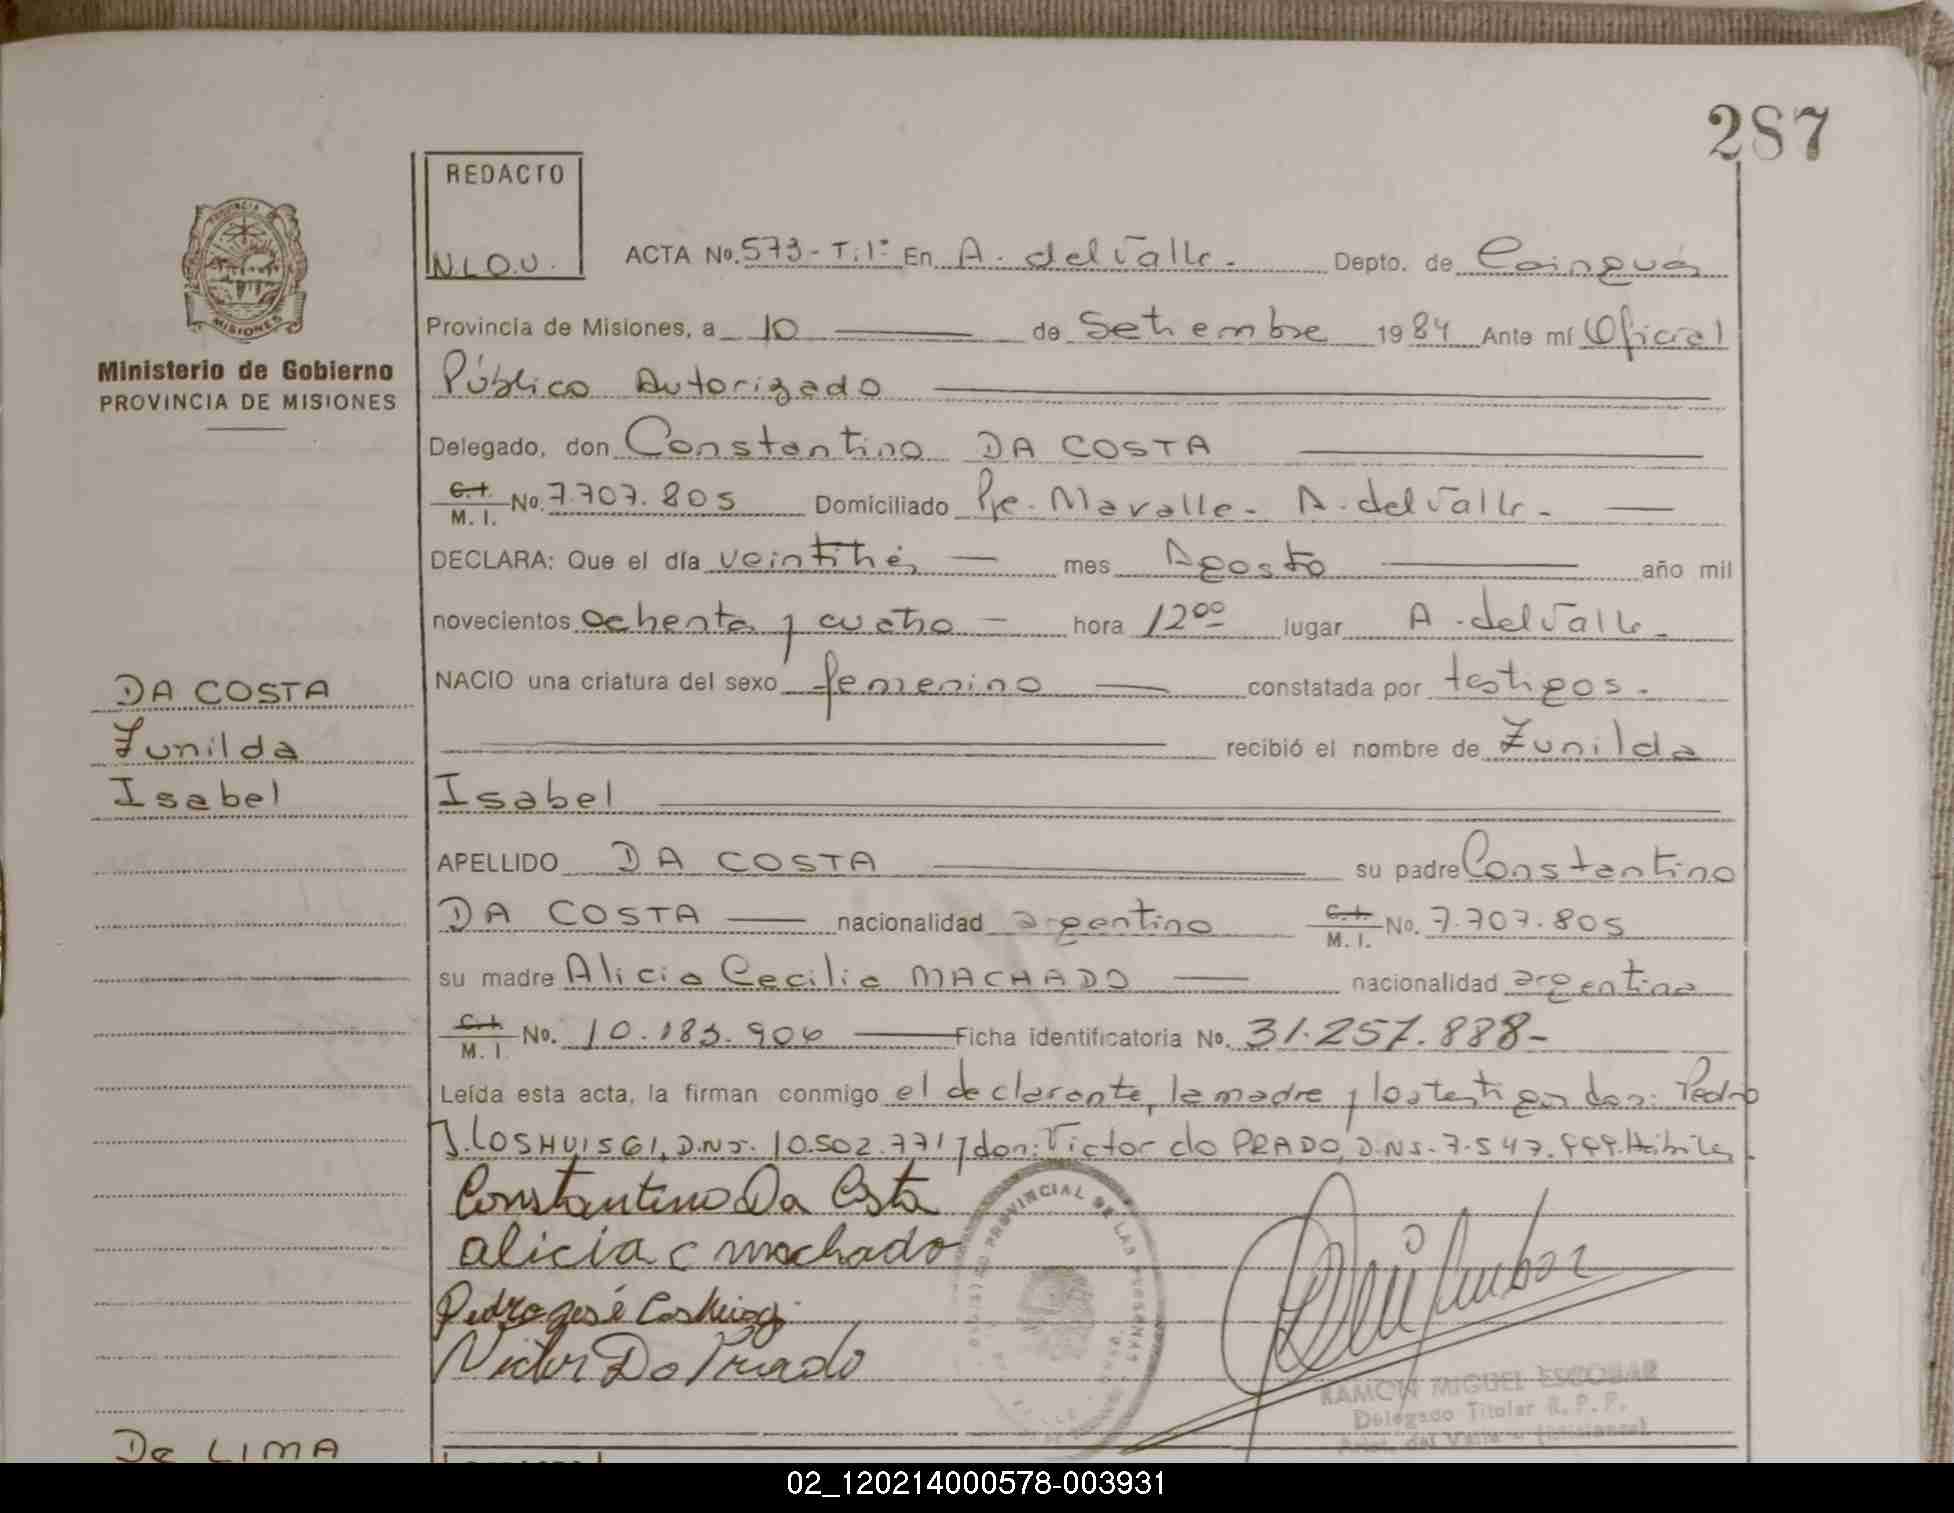 287
REDACTO
N.L.O.U.
ACTA No. 573 - T: 1º En A. del Valle - Depto. de Cainguás
Provincia de Misiones, a 10 de Setiembre 1984 Ante mí Oficial
Ministerio de Gobierno
PROVINCIA DE MISIONES
Público Autorizado
Delegado, don Constantino DA COSTA
C.I. M. I. No. 7.707.805 Domiciliado Pje. Mavalle - A. del Valle -
DECLARA: Que el día veintitrés mes Agosto año mil
novecientos ochenta y cuatro - hora 12 00 lugar A. del Valle -
NACIO una criatura del sexo femenino constatada por testigos.
DA COSTA
Zunilda
Isabel
recibió el nombre de Zunilda
Isabel
APELLIDO DA COSTA su padre Constantino
DA COSTA nacionalidad argentino C.I. M. I. No. 7.707.805
su madre Alicia Cecilia MACHADO nacionalidad argentina
C.I. M. I. No. 10.183.906 Ficha identificatoria No. 31.257.888-
Leída esta acta, la firman conmigo el declarante, la madre y los testigos don: Pedro
J. LOSHUISGI, D.N.I. 10.502.771 y don: Victor do PRADO, D.N.I. 7.547.999. Hábiles
Constantino Da Costa
alicia c machado
Pedro José
Victor Do Prado
PROVINCIAL DE LAS PERSONAS
RAMON MIGUEL ESCOBAR
Delegado Titular R. P. P.
Arist. del Valle - (Misiones)
De LIMA
02_120214000578-003931